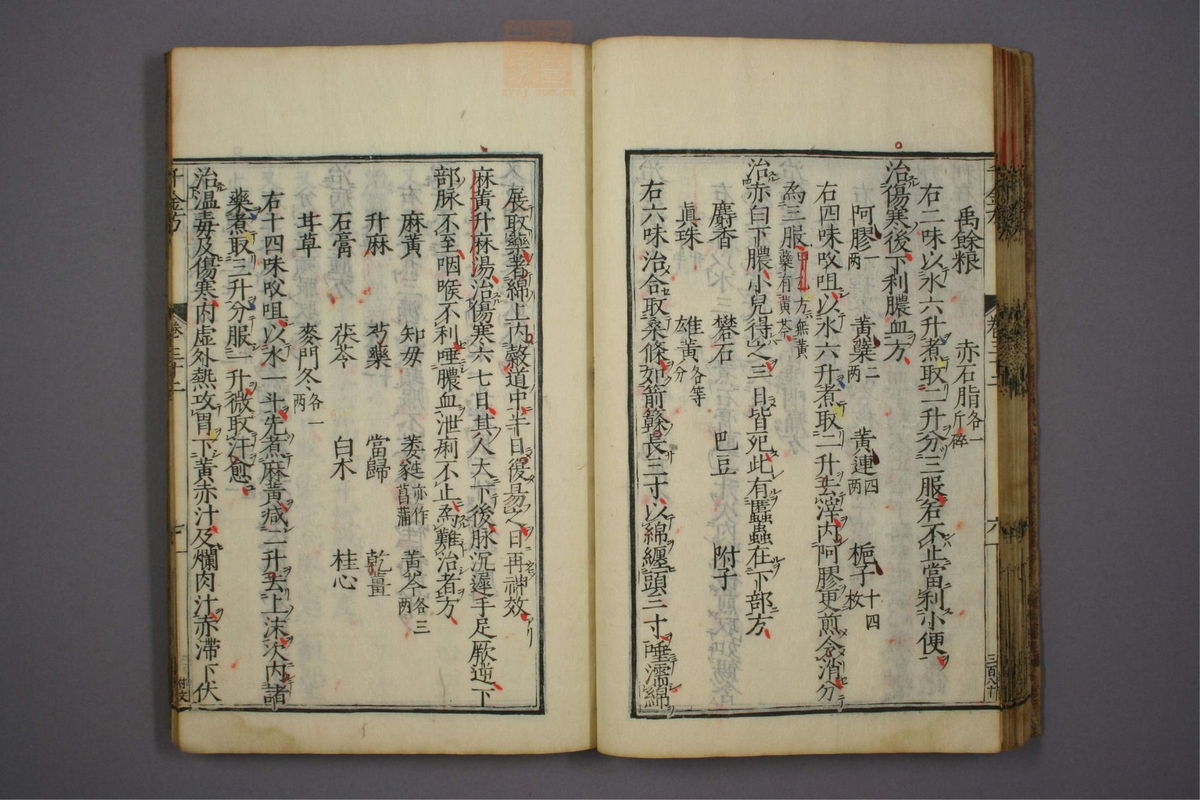 禹餘粮　赤石脂各一斤碎
右二味以水六升煮取二升分三服若不止當利小便
治傷寒後下利膿血方
阿膠一兩　黃蘗二兩　黃連四兩　梔子十四枚
右四味㕮咀以水六升煮取二升去滓內阿膠更煎令消分
為三服
方無黃
藥有黃芩
治赤白下膿小兒得之三日皆死此有䘌蟲在下部方
麝香　礬石　巴豆　附子
真珠　雄黃各等分
右六味治合取桑條如箭簳長三寸以綿纏頭三寸唾濡綿
展取藥著綿上內穀道中半日復易之日再神效
麻黃升麻湯治傷寒六七日其人大下後脉沉遲手足厥逆下
部脉不至咽喉不利唾膿血泄痢不止為難治者方
麻黃　知母　萎蕤亦作菖蒲　黃芩各三兩
升麻　芍藥　當歸　乾薑
石膏　茯苓　白朮　桂心
甘草　麥門冬各一兩
右十四味㕮咀以水一斗先煮麻黃減二升去上沫次內諸
藥煮取三升分服一升微取汗愈
治溫毒及傷寒內虛外熱攻胃下黃赤汁及爛肉汁赤滯下伏